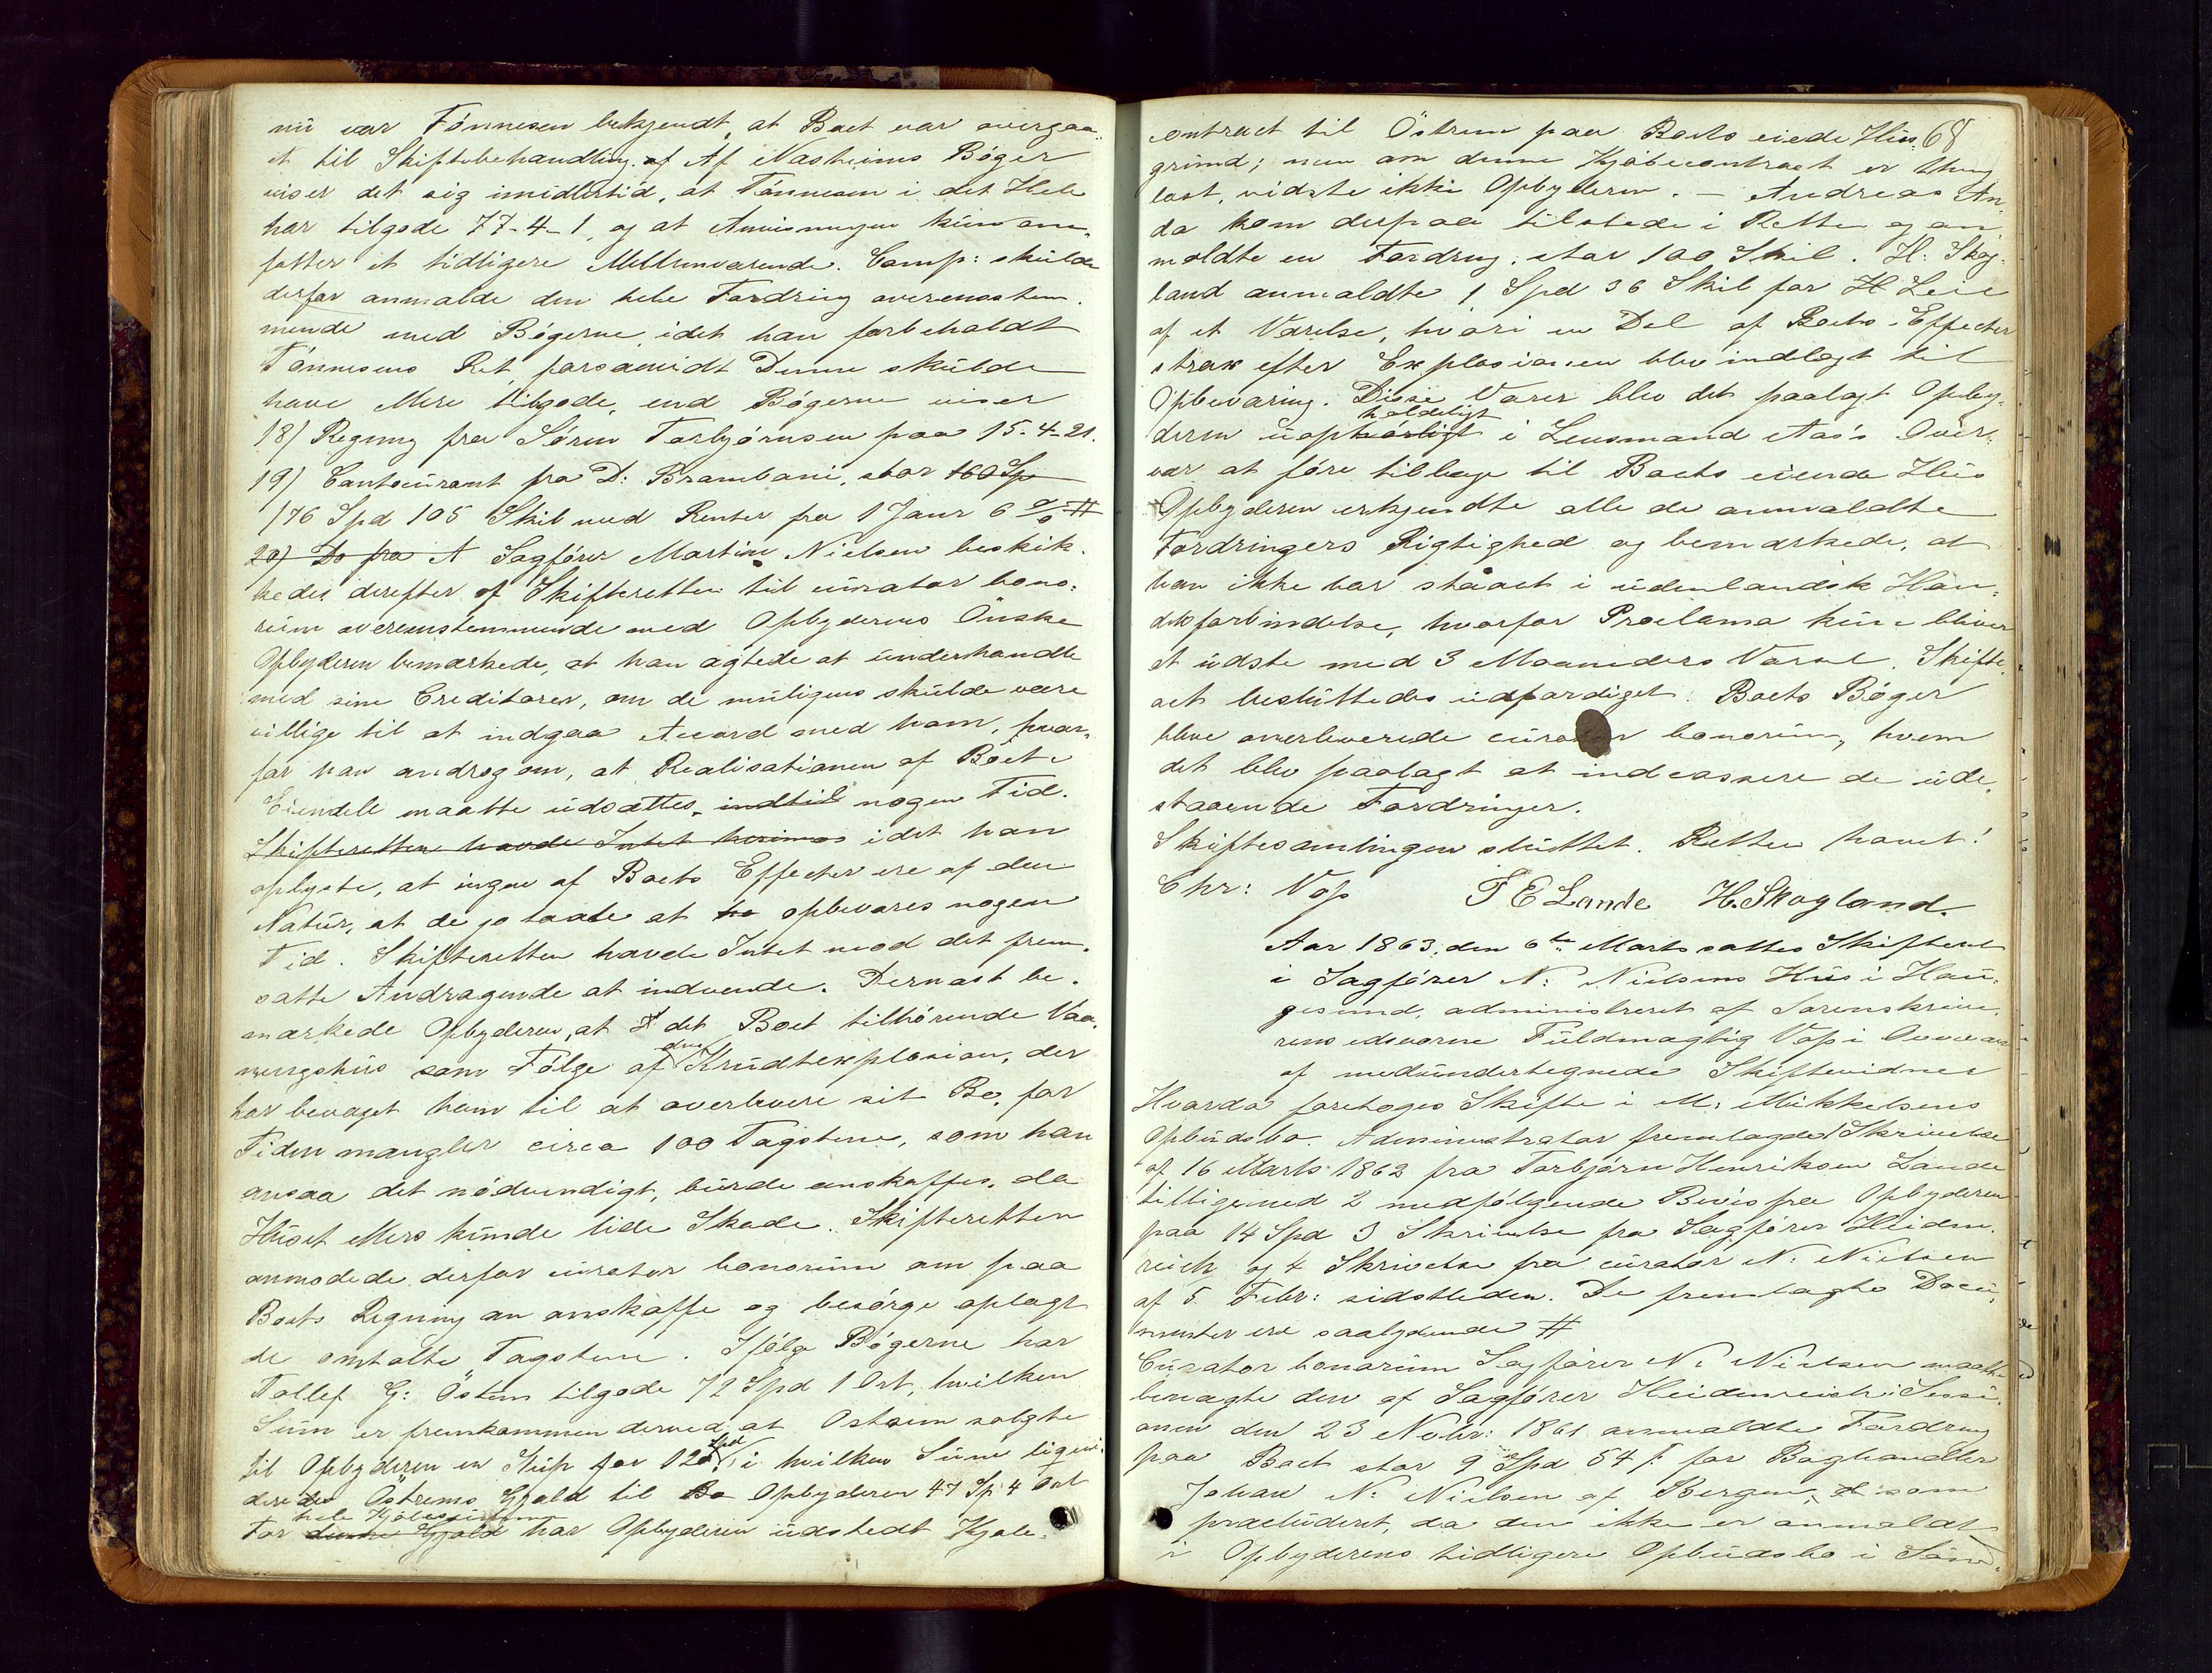 nu var Tönnesen bekjendt, at Boet var overgaa-
et til Skiftebehandling. Af Nasheims Böger
viser det sig imidlertid, at Tönnesen i det Hele
har tilgode 77-4-1, og at Anvisningen kun om-
fatter et tidligere Mellemværende. Comp: skulde
derfor anmelde den hele Fordring overensstem-
mende med Bögerne, idet han forbeholdt
Tönnesens Ret, forsaavidt Denne skulde
have Mere tilgode, end Bögerne viser
18) Regning fra Sören Torbjörnsen paa 15-4-21.
19) Contocurant fra D: Brambani, stor 160 Sp
176 Spd 105 Skil med Renter fra 1 Janr 6 % #
20) Do fra A Sagförer Martin Nielsen beskik-
kedes derefter af Skifteretten til curator bono-
rum overensstemmende med Opbyderens Önske
Opbyderen bemærkede, at han agtede at underhandle
med sine Creditorer, om de muligens skulde være
villige til at indgaa Accord med ham, hvor-
for han androg om, at Realisationen af Boets
Eiendele maatte udsættes, indtil nogen Tid.
Skifteretten havde Intet herimod idet han
oplyste, at ingen af Boets Effecter ere af den
Natur, at de jo taale at opbevares nogen
Tid. Skifteretten havde Intet mod det frem-
satte Andragende at indvende. Dernæst be-
mærkede Opbyderen, at det Boet tilhörende Vaa-
ningshus som Fölge af den Krudtexplosion, der
har bevæget ham til at overlevere sit Bo, for
Tiden mangler circa 100 Tagstene, som han
ansaa det nödvendigt, burde anskaffes, da
Huset Mers kunde lide Skade. Skifteretten
anmodede derfor curator bonorum om paa
Boets Regning an anskaffe og besörge oplagt
de omtalte Tagstene. Ifölge Bögerne har
Tollef G: Östrem tilgode 72 Spd 1 Ort, hvilken
Sum er fremkommen derved, at Ostrem solgte
til Opbyderen en Skip for 120 Spd, i hvilken Sum liqvi-
deredes Östrems Gjæld til Bo Opbyderen 47 Sp 4 Ort
For denne Gjæld hele Kjöbesummen har Opbyderen udstedt Kjöbe-
68
contract til Östrem paa Boets eiede Hus-
grund; men om denne Kjöbecontract er thing-
læst, vidste ikke Opbyderen. – Andreas An-
da kom derpaa tilstede i Retten og an-
meldte en Fordring, stor 100 Skil. H: Skog-
land anmeldte 1 Spd 36 Skil for H Leie
af et Værelse, hvori en Del af Boets Effecter
strax efter Explosionen blev indlagt til
Opbevaring. Disse Varer blev det paalagt Opby-
deren uopholdeligt i Lensmand Aas's Over-
vær at före tilbage til Boets eiende Hus
Opbyderen erkjendte alle de anmeldte
Fordringers Rigtighed og bemærkede, at
han ikke har staaet i udenlandsk Han-
delsforbindelse, hvorfor Proclama kun bliver
at udste med 3 Maaneders Varsel. Skifte-
ret besluttedes udfærdiget. Boets Böger
bleve overleverede curator bonorum, hvem
det blev paalagt at indcassere de ude-
staaende Fordringer.
Skiftesamlingen sluttet. Retten hævet!
Chr: Voss T E Lande H. Skogland.
Aar 1863, den 6te Marts sattes Skifteret
i Sagförer N: Nielsens Hus i Hau-
gesund, administreret af Sorenskrive-
rens edsvorne Fuldmægtig Voss i Overvær
af medundertegnede Skiftevidner
Hvorda foretoges Skifte i M: Mikkelsens
Opbudsbo. Administrator fremlagde Skrivelse
af 16 Marts 1862 fra Torbjörn Henriksen Lande
tilligemed 2 medfölgende Bevis fra Opbyderen
paa 14 Spd 3 Skrivelse fra Sagförer Heiden-
reich og 4 Skrivelse fra curator N: Nielsen
af 5 Febr: sidstleden. De fremlagte Docu-
menter ere saalydende #
Curator bonorum Sagförer N: Nielsen maatte
benægte den af Sagförer Heidenreich i Sessi-
onen den 23 Novbr: 1861 anmeldte Fordring
paa Boet stor 9 Spd 54 ſ: for Boghandler
Johan N: Nielsen af Bergen, som
præcluderet, da den ikke er anmeldt
i Opbyderens tidligere Opbudsbo i Sönd-